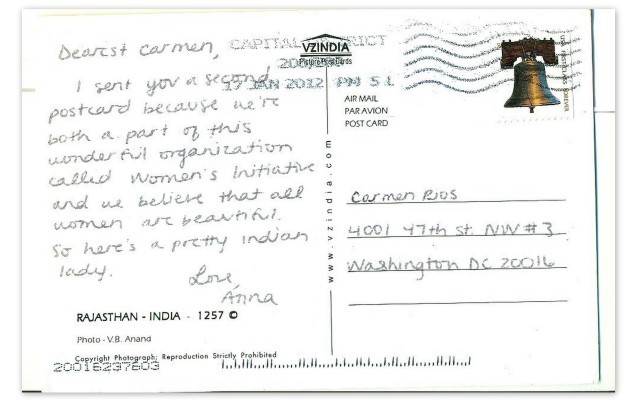 Dearest Carmen,
I sent you a second
postcard because we're
both a part of this
wonderful organization
called Women's Initiative
and we believe that all
women are beautiful.
So here's a pretty indian
lady.
Love,
Anna
RAJASTHAN - INDIA - 1257 ©
Photo - V.B. Anand
Copyright Photograph; Reproduction Strictly Prohibited
20016237603
CAPITAL DISTRICT
17 JAN 2012 PM 5 L
VZINDIA
PicturePostcards
AIR MAIL
PAR AVION
POST CARD
www.vzindia.com
FOREVER
Carmen Rios
4001 47th St. NW #3
Washington DC 20016